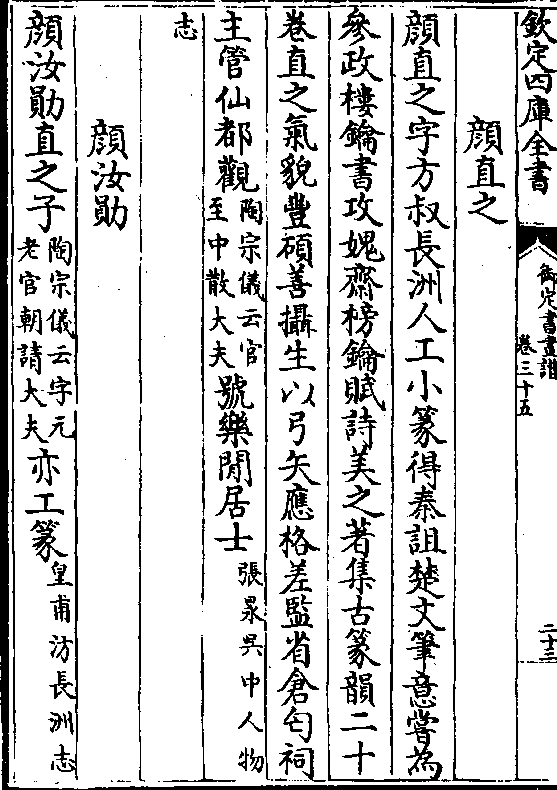 欽定四庫全書
御定書畫譜
卷三十五
二十三
顔直之
顔直之字方叔長洲人工小篆得秦詛楚文筆意嘗爲
參政樓鑰書攻媿齋榜鑰賦詩美之著集古篆韻二十
卷直之氣貌豐碩善攝生以弓矢應格差監省倉匄祠
主管仙都觀陶宗儀云官至中散大夫號樂閒居士張㫤吳中人物
志
顔汝勛
顔汝勛直之子陶宗儀云字元老官朝請大夫亦工篆皇甫汸長洲志